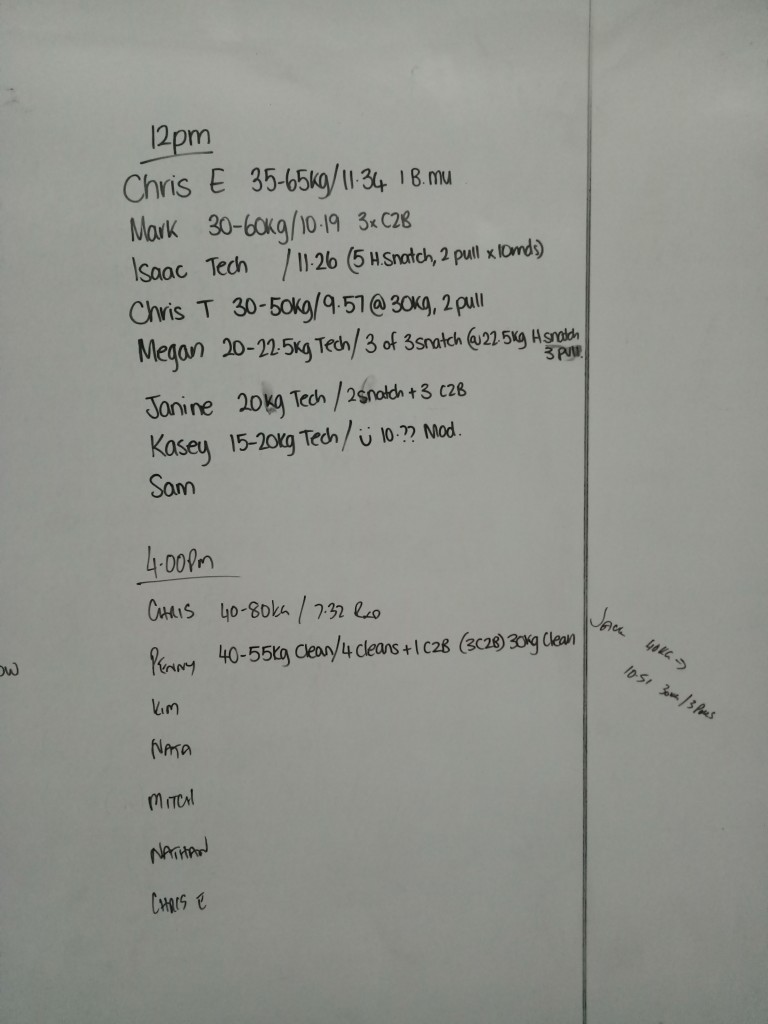 12pm
Chris E 35-65kg/11.34 1 B.mu
Mark 30-60kg/10.19 3xC2B
Isaac Tech /11.26 (5 H.Snatch, 2 pull x10rnds)
Chris T 30-50kg/9.57@30kg, 2pull
Megan 20-22.5kg Tech/ 3 of 3snatch @22.5kg H snatch
3 pull
Janine 20kg Tech /2snatch+3 C2B
Kasey 15-20kg Tech/ Ü 10.?? Mod.
Sam
4.00Pm
CHRIS 40-80kg / 7.32 RXD
PENNY 40-55kg Clean/4 cleans+1 C2B (3C2B) 30kg Clean
KIM
NATA
MITCH
NATHAN
CHRIS E
OW
JACK 40KG→
10.51 30KG/3 Pulls